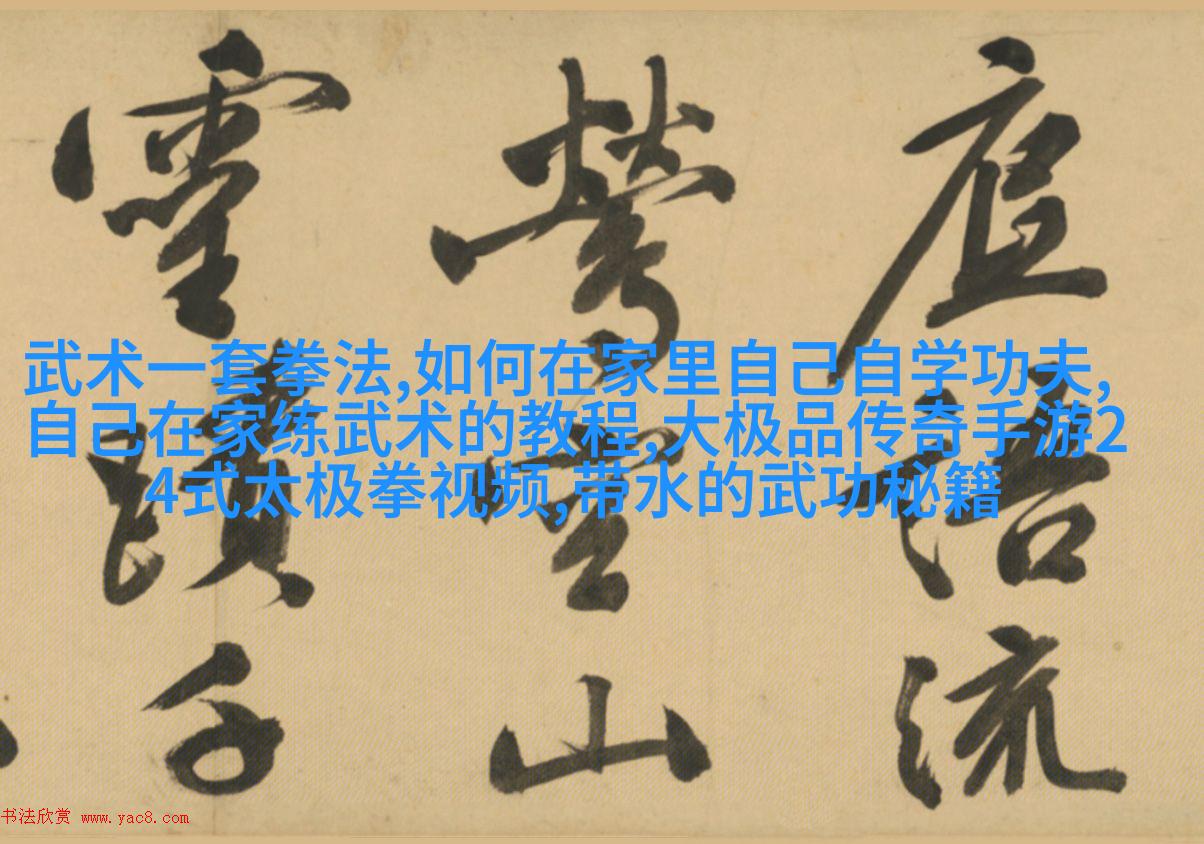 武术一套拳法,如何在家里自己自学功夫,
自己在家练武术的教程,大极品传奇手游2
4式太极拳视频,带水的武功秘籍
語流
鶯空山
靈蹟千
书法欣赏 www.yac8.com